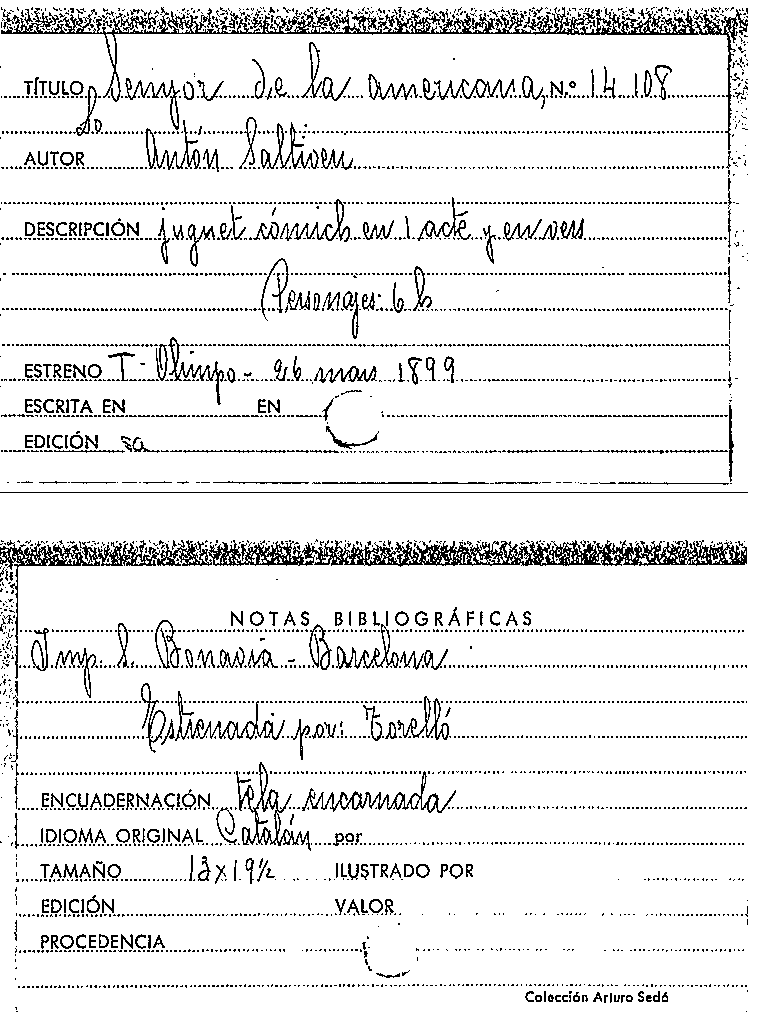 TÍTULO Senyor de la americana, N.º 14 108
Lo
AUTOR Antón Saltiveri
DESCRIPCIÓN juguet cómich en 1 acte y en vers
Personajes: 6 h
ESTRENO T- Olimpo - 26 mars 1899
ESCRITA EN EN
EDICIÓN
NOTAS BIBLIOGRÁFICAS
Imp. S. Bonavia - Barcelona
Estrenada por: Torelló
ENCUADERNACIÓN tela encarnada
IDIOMA ORIGINAL Catalán por
TAMAÑO 13x19½ ILUSTRADO POR
EDICIÓN VALOR
PROCEDENCIA
Colección Arturo Sedó